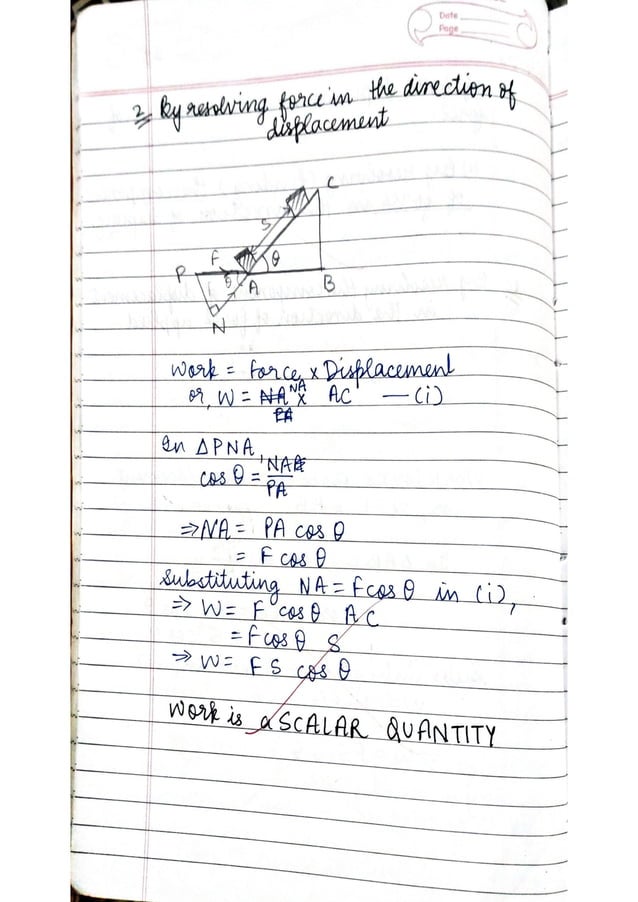 Date
Page
2, By resolving force in the direction of
displacement
C
S
F
θ
P
θ
A
B
N
Work = Force x Displacement
or, W = NA x AC — (i)
In ΔPNA,
cos θ = NA
PA
⇒ NA = PA cos θ
= F cos θ
Substituting NA = Fcos θ in (i),
⇒ W = F cos θ AC
= Fcos θ S
⇒ W = F S cos θ
Work is a SCALAR QUANTITY